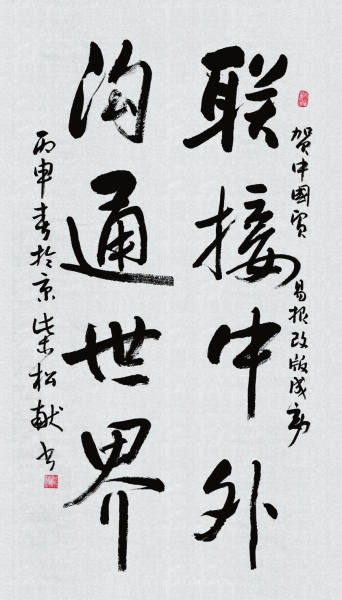 贺中國贸易报改版成功
联接中外
沟通世界
丙申春於京柴松献书